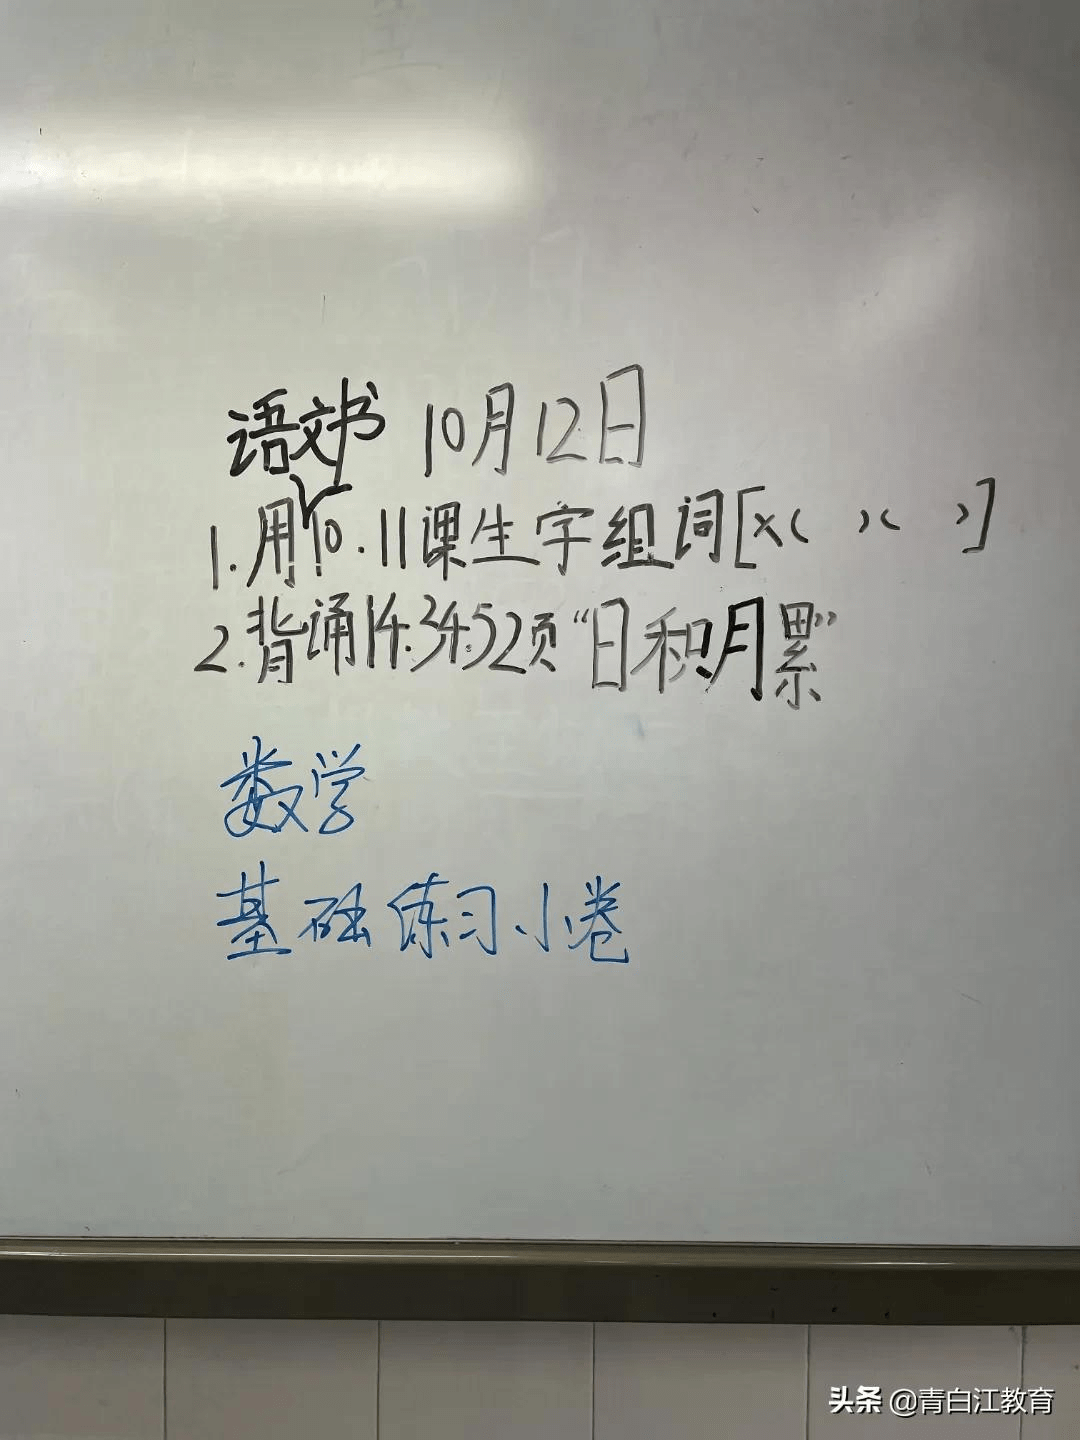 语文书 10月12日
1.用10.11课生字组词[x( )( )]
2.背诵14.34.52页“日积月累”
数学
基础练习小卷
头条 @青白江教育